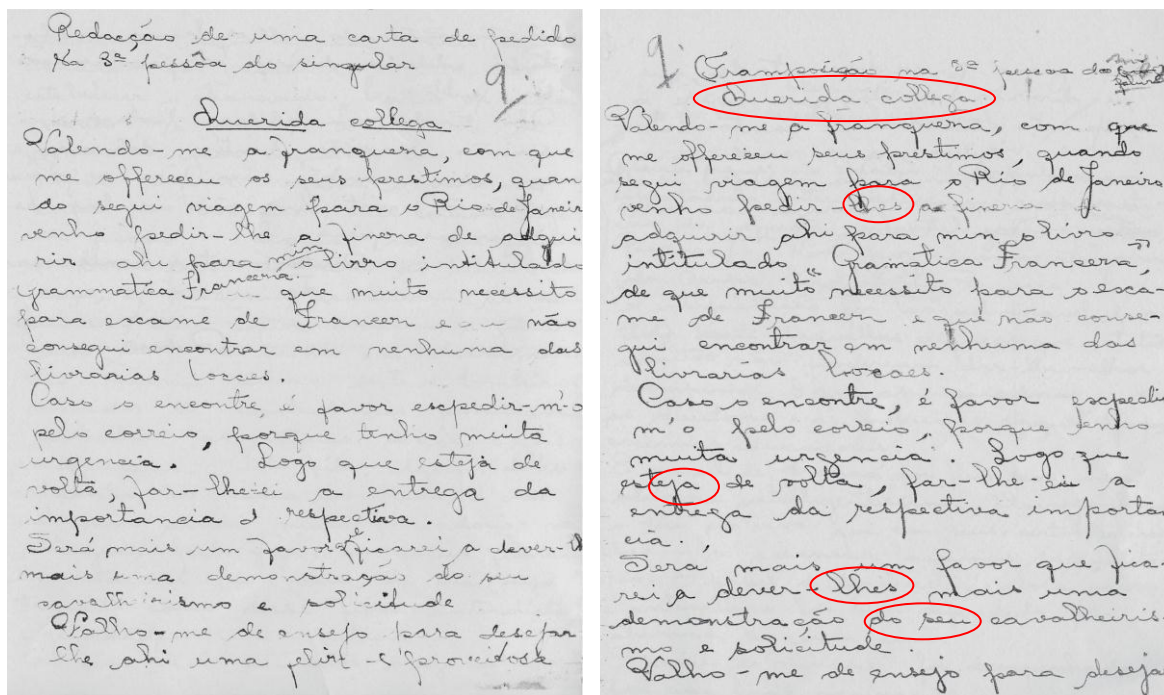 Redacção de uma carta de pedido
Na 3ª pessôa do singular
9
Querida collega
Valendo-me a franqueza, com que
me offereceu os seus prestimos, quan
do segui viagem para o Rio de Janeir
venho pedir-lhe a fineza de adqui
rir ahi para mim o livro intitulado
grammatica Franceza que muito necissito
para exame de Francez e não
consegui encontrar em nenhuma das
livrarias locaes.
Caso o encontre, é favor escpedir-m'o
pelo correio, porque tenho muita
urgencia. Logo que esteja de
volta, far-lhe-ei a entrega da
importancia respectiva.
Será mais um favor e ficarei a dever-lh
mais uma demonstração do seu
cavalheirismo e solicitude
Valho-me de ensejo para desejar
lhe ahi uma
9
Transposição na 3ª pessoa do
Querida collega
Valendo-me a franqueza, com que
me offereceu seus prestimos, quando
segui viagem para o Rio de Janeiro
venho pedir-lhes a fineza de
adquirir ahi para mim o livro
intitulado "Gramatica Franceza",
de que muito necessito para o exa-
me de Francez e que não conse-
gui encontrar em nenhuma das
livrarias locaes.
Caso o encontre, é favor escpedir
m'o pelo correio, porque tenho
muita urgencia. Logo que
esteja de volta, far-lhe-ei a
entrega da respectiva importan
cia.
Sera mais um favor que fica-
rei a dever-lhes mais uma
demonstração do seu cavalheiris
mo e solicitude.
Valho-me de ensejo para deseja